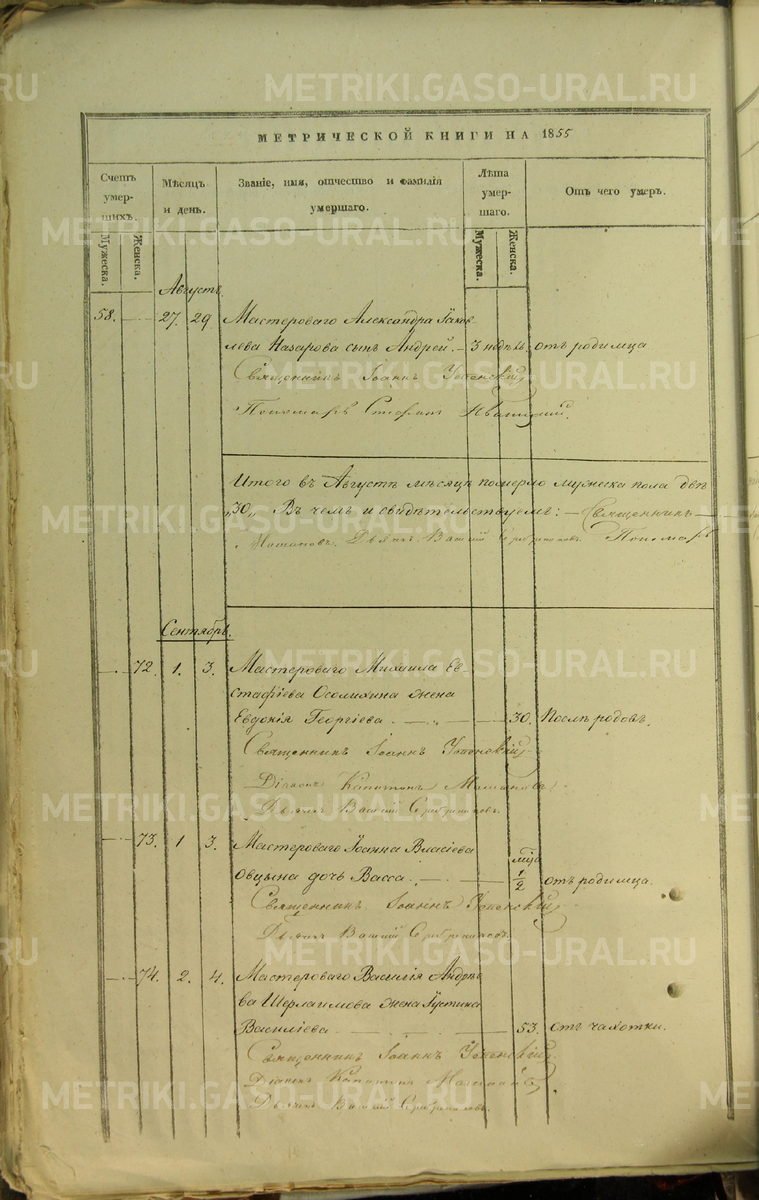 METRIKI.GASO-URAL.RU
МЕТРИЧЕСКОЙ КНИГИ НА 1855
Счетъ умершихъ.
Мужеска.
Женска.
Мѣсяцъ и день.
Званіе, имя, отчество и фамилія умершаго.
Лѣта умершаго.
Мужеска.
Женска.
Отъ чего умеръ.
Августъ.
58. 27. 29 Мастероваго Александра Іаков
лева Назарова сынъ Андрей. 3 недѣль отъ родимца
Священникъ Іоаннъ Успенскій
Пономарь
Итого въ Августѣ мѣсяцѣ померло мужеска пола
„30„ Въ чемъ и свидѣтельствуемъ: Священникъ
Дьячекъ Василій Серебрениковъ. Пономарь
Сентябрь.
72. 1. 3. Мастероваго Михаила Ев
стафіева Осолихина жена
Евдокія Георгіева 30. Послѣ родовъ.
Священникъ Іоаннъ Успенскій
Діаконъ Капитонъ
Дьячекъ Василій Серебрениковъ.
73. 1 3. Мастероваго Іоанна Власіева мѣс.
Овцына дочь Васса. 1/2 отъ родимца.
Священникъ Іоаннъ Успенскій
Дьячекъ Василій Серебрениковъ.
74. 2. 4. Мастероваго Василія Андрѣе
ва Шерлаимова жена Іустина
Василіева 53. отъ чахотки.
Священникъ Іоаннъ Успенскій
Діаконъ Капитонъ
Дьячекъ Василій Серебрениковъ.